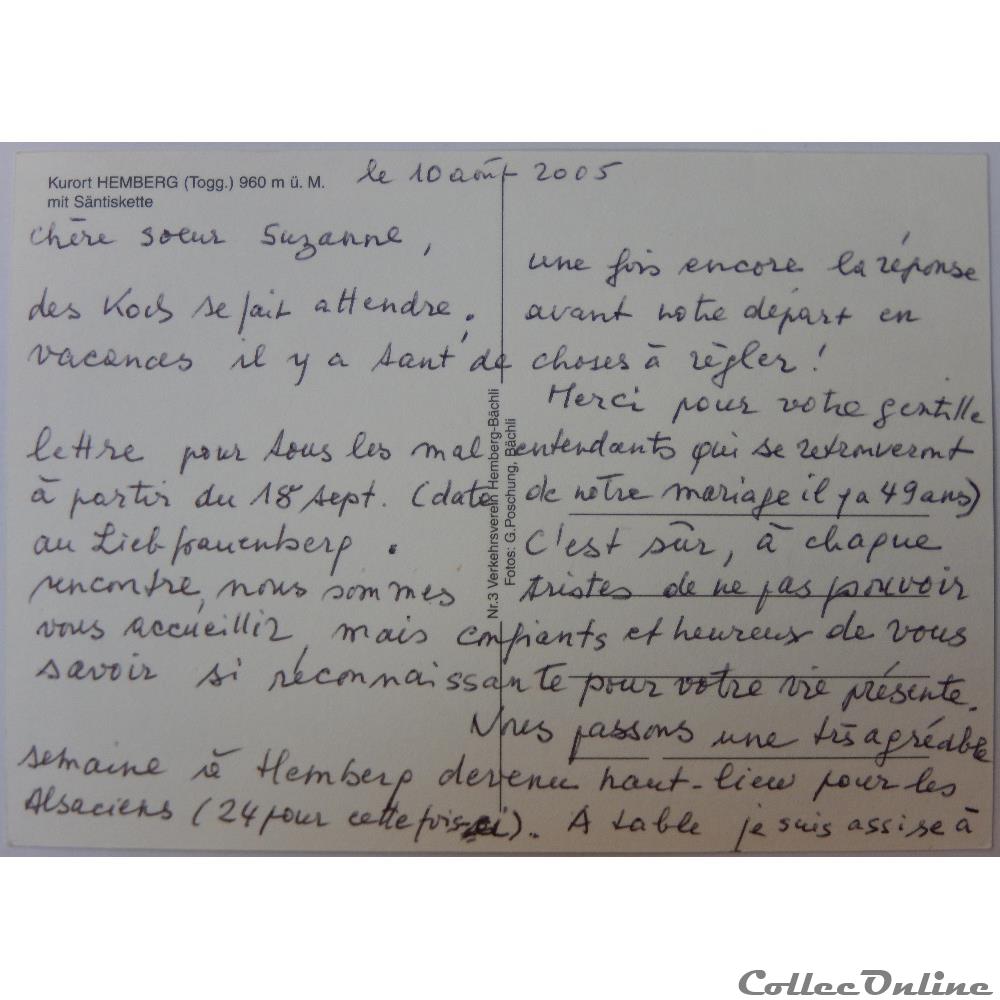 Kurort HEMBERG (Togg.) 960 m ü. M.
mit Säntiskette
le 10 août 2005
Chère soeur Suzanne,
une fois encore la réponse
des Koch se fait attendre. avant notre départ en
vacances il y a tant de choses à règler !
Merci pour votre gentille
lettre pour tous les mal entendants qui se retrouveront
à partir du 18 sept. (date de notre mariage il y a 49 ans)
au Liebfrauenberg. C'est sûr, à chaque
rencontre, nous sommes tristes de ne pas pouvoir
vous accueillir, mais confiants et heureux de vous
savoir si réconnaissante pour votre vie présente.
Nous passons une très agréable
semaine à Hemberg devenu haut-lieu pour les
Alsaciens (24 pour cette fois-ci). A table je suis assise à
Nr.3 Verkehrsverein Hemberg-Bächli
Fotos: G.Poschung, Bächli
CollecOnline